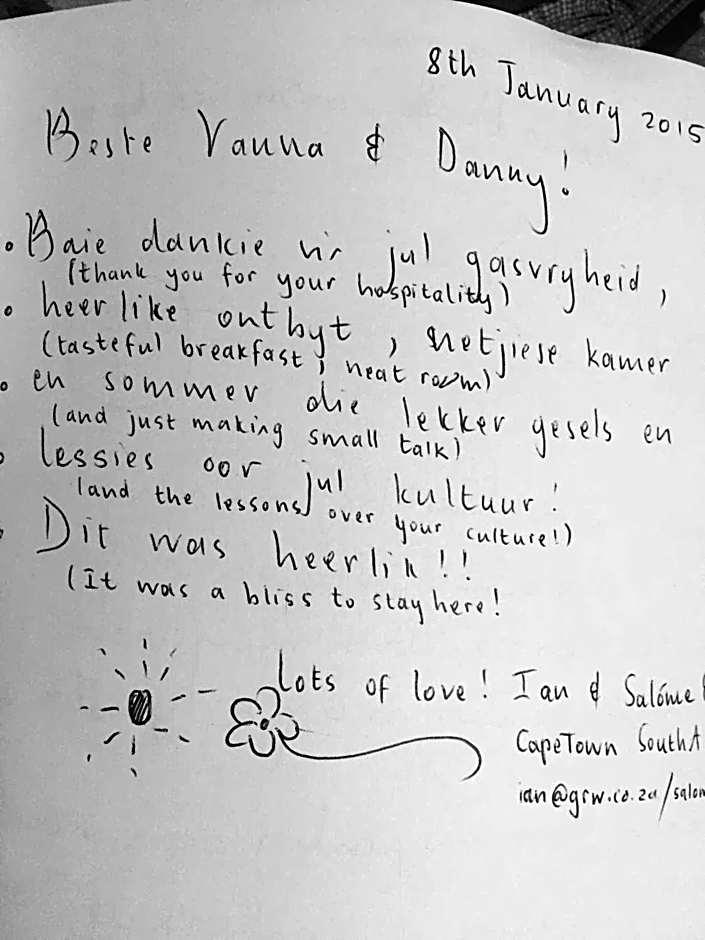 8th January 2015
Beste Vanna & Danny!
• Baie dankie vir jul gasvryheid,
(thank you for your hospitality)
• heerlike ontbyt, netjiese kamer
(tasteful breakfast, neat room)
• en sommer die lekker gesels en
(and just making small talk)
• lessies oor jul kultuur!
(and the lessons over your culture!)
• Dit was heerlik!!
(It was a bliss to stay here!
Lots of love! Ian & Salóme
CapeTown SouthA
ian@grw.co.za/salom